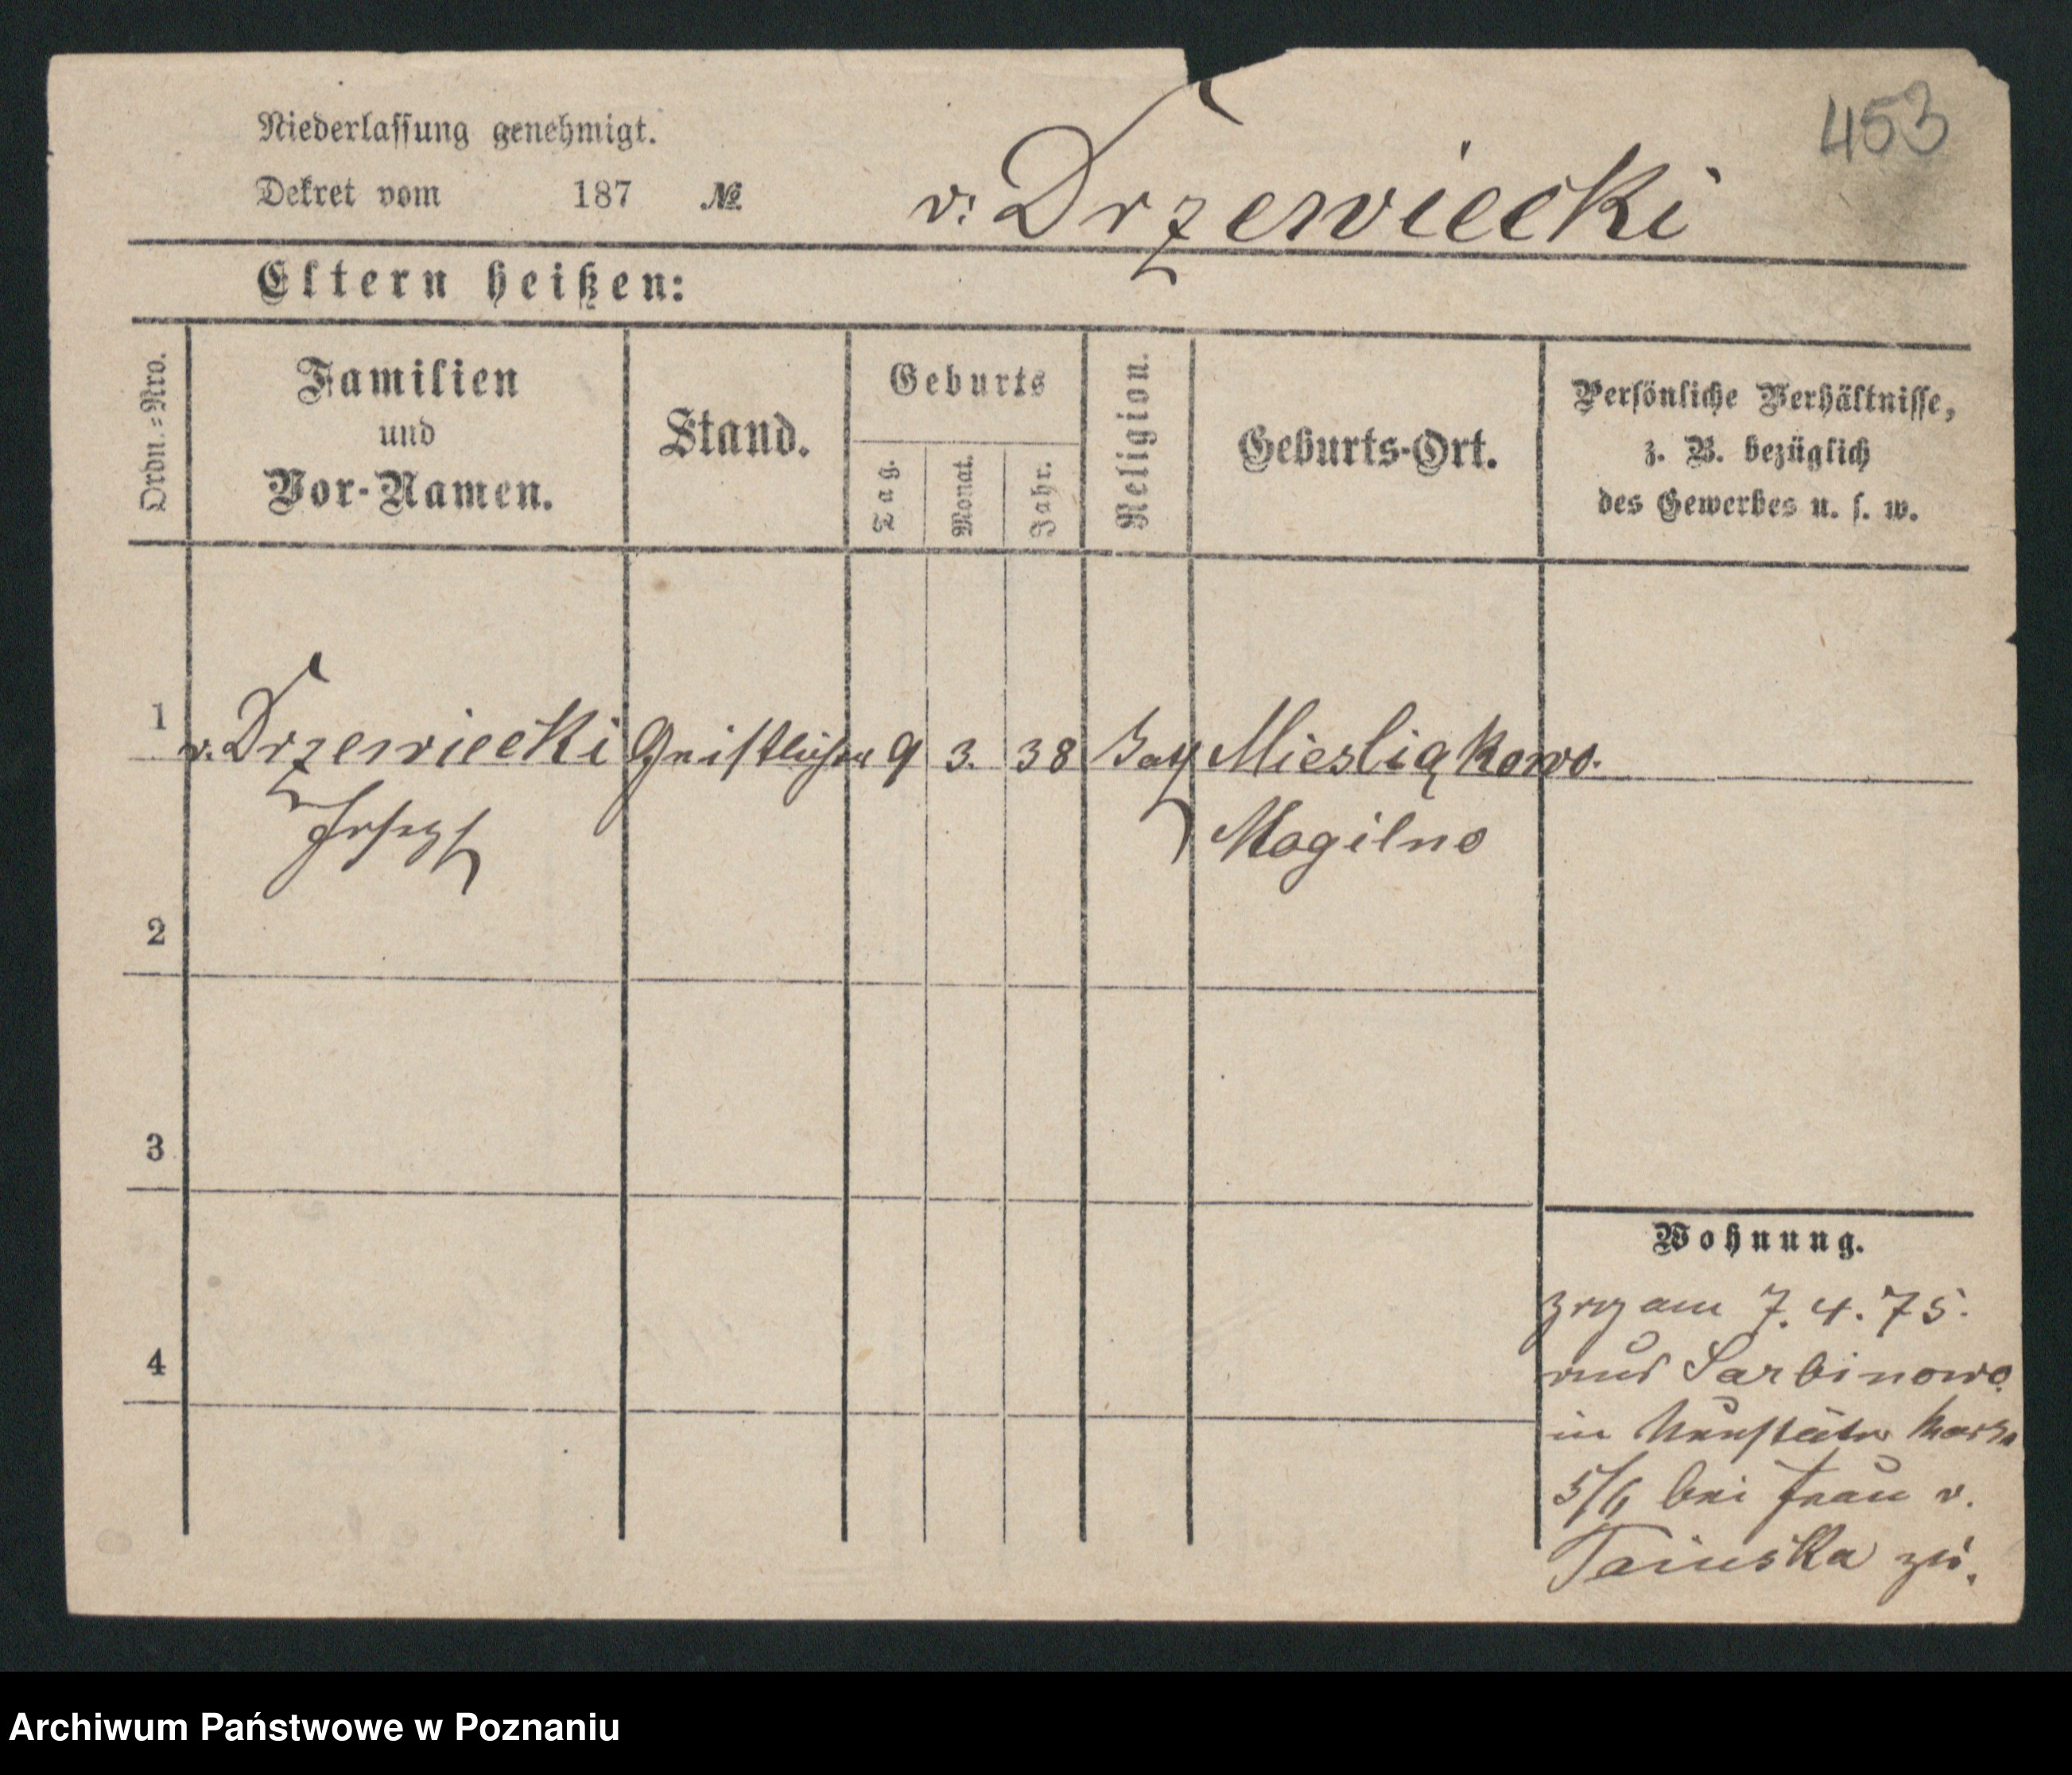 453
Niederlassung genehmigt.
Dekret vom 187 №
v. Drzewiecki
Eltern heißen:
Ordn.=Nro.
Familien
und
Vor-Namen.
Stand.
Geburts
Tag.
Monat.
Jahr.
Religion.
Geburts-Ort.
Persönliche Verhältnisse,
z. B. bezüglich
des Gewerbes u. s. w.
1
v. Drzewiecki Geistlicher 9 3. 38 Miesliąkowo.
Joseph Mogilno
2
3
4
Wohnung.
zog am 7. 4. 75.
aus Sarbinowo
in Neustädter
5/6 bei Frau v.
zu.
Archiwum Państwowe w Poznaniu